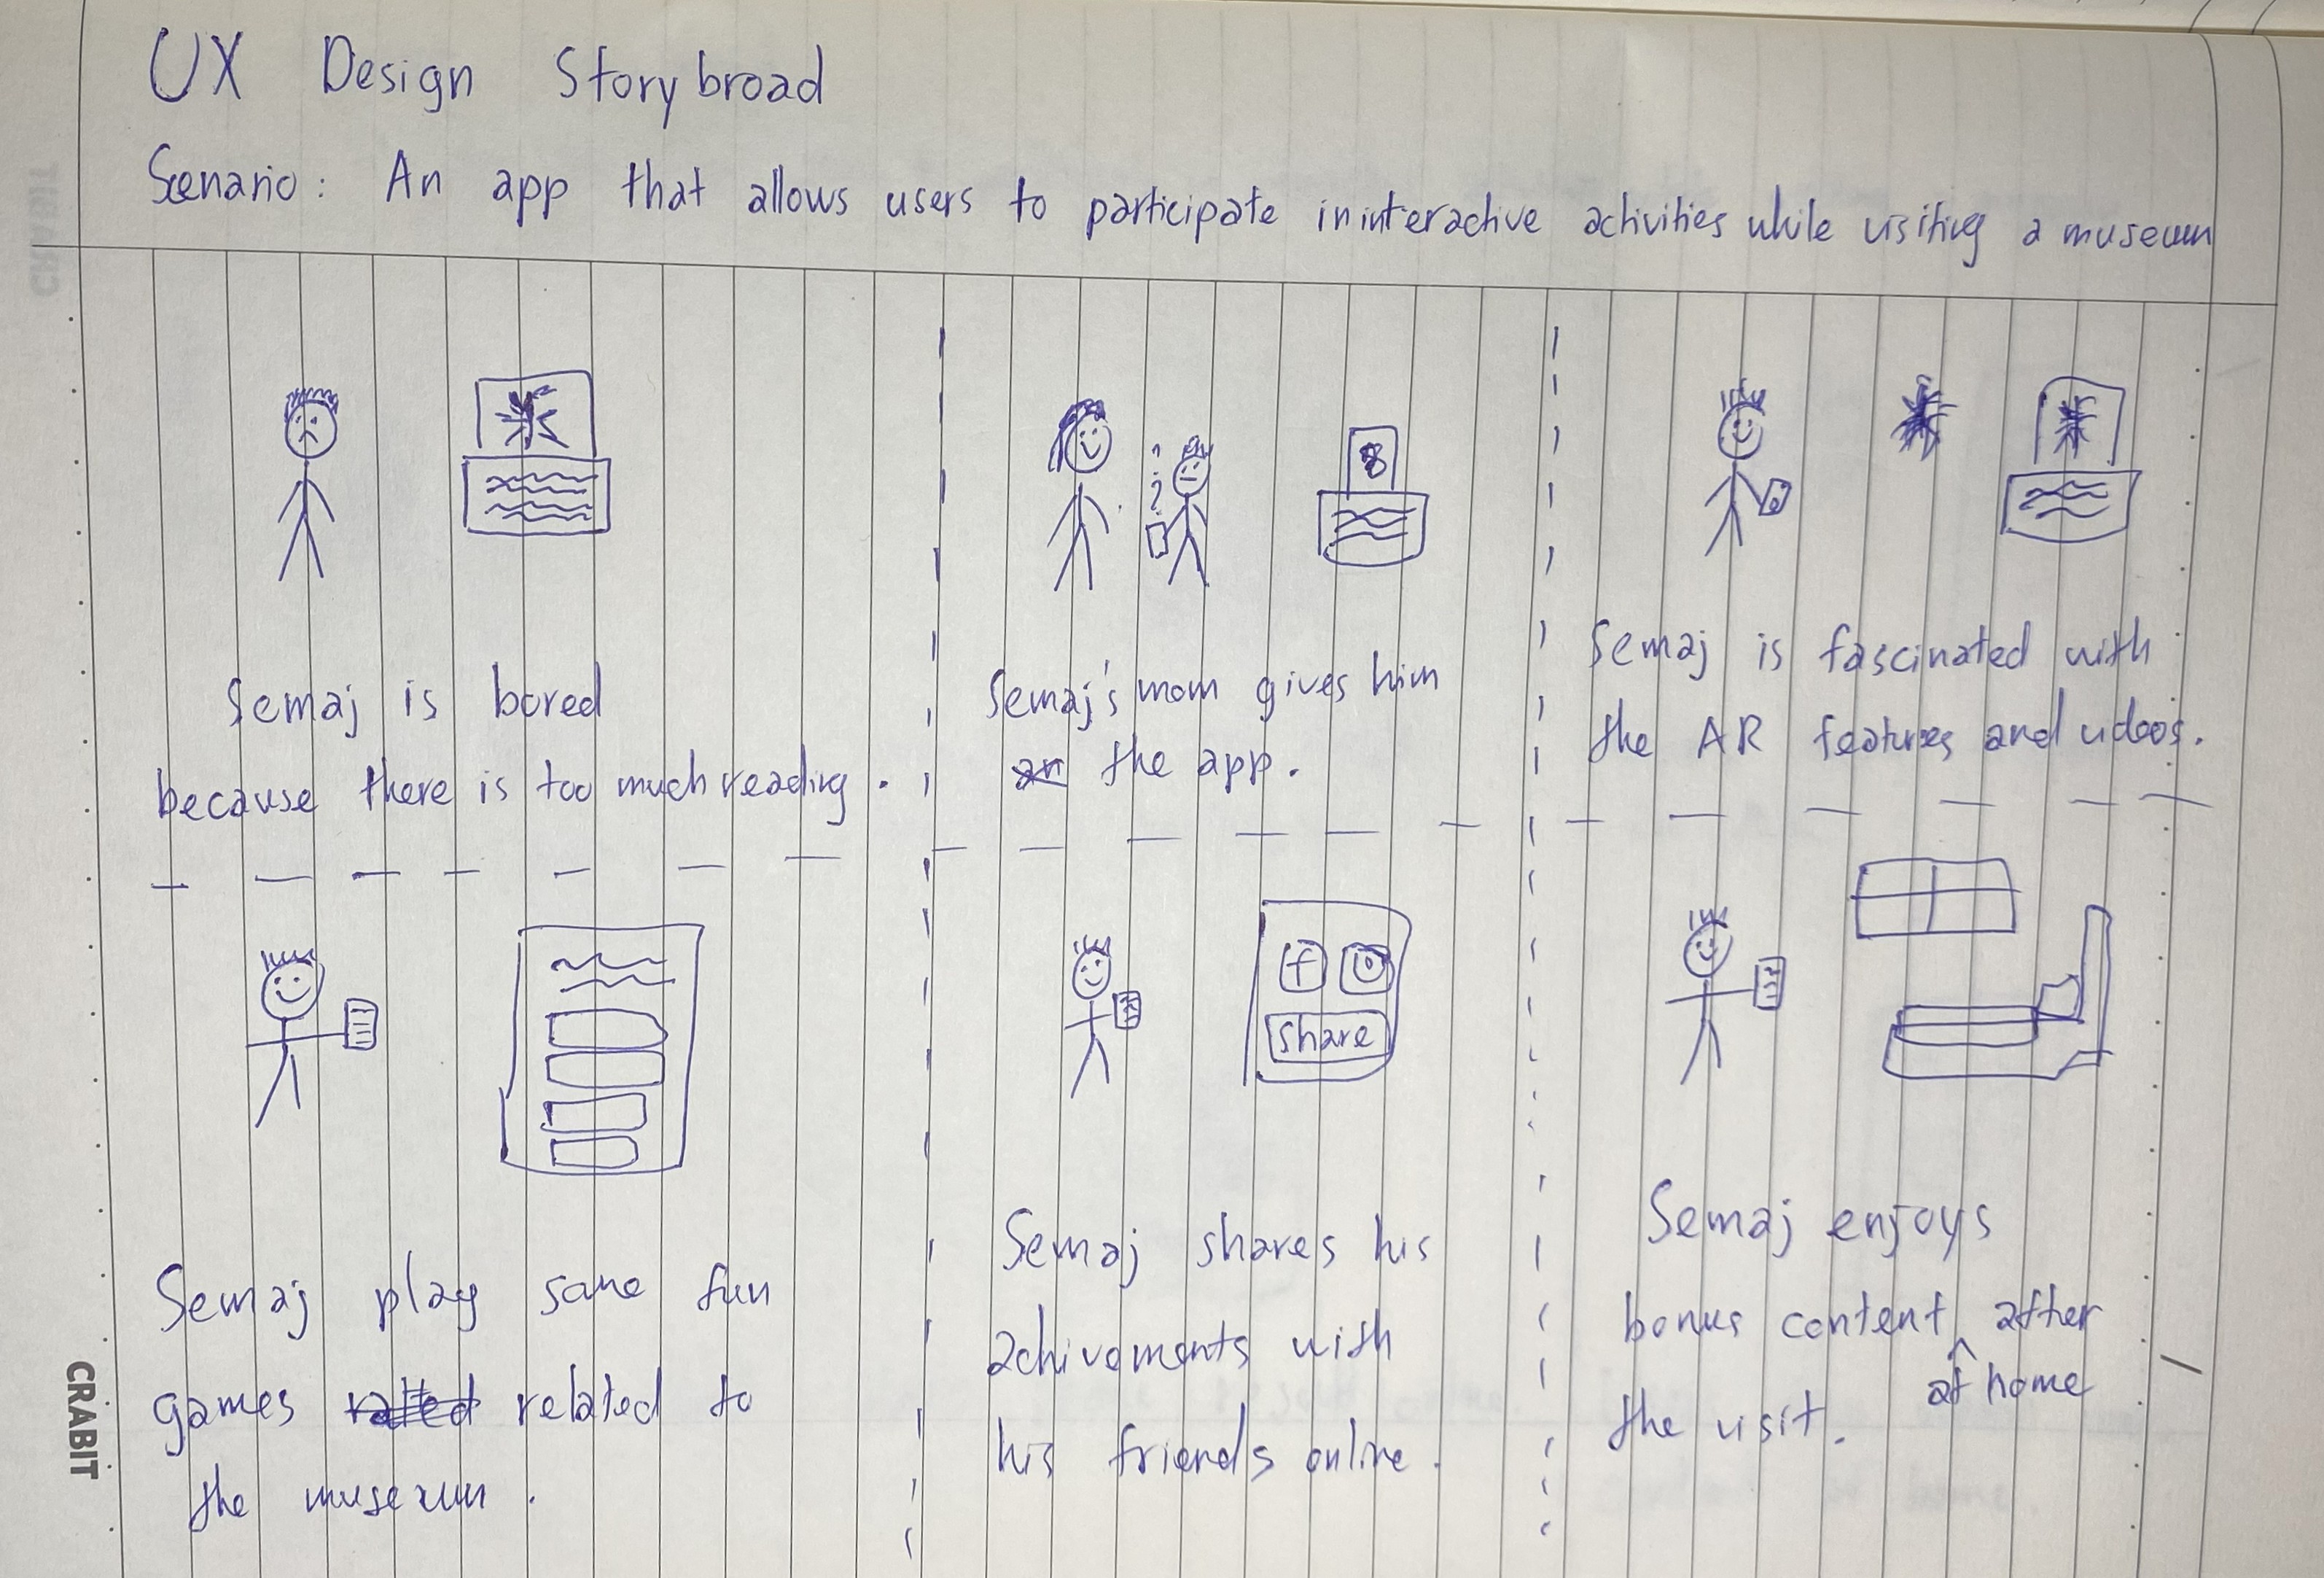 UX Design Storybroad
Scenario: An app that allows users to participate in interactive activities while visiting a museum
Semaj is bored
because there is too much reading.
Semaj's mom gives him
an the app.
Semaj is fascinated with
the AR features and videos.
Semaj play some fun
games ralted related to
the museum.
share
Semaj shares his
achivements with
his friends online.
Semaj enjoys
bonus content after
at home
the visit.
CRABIT
CRABIT